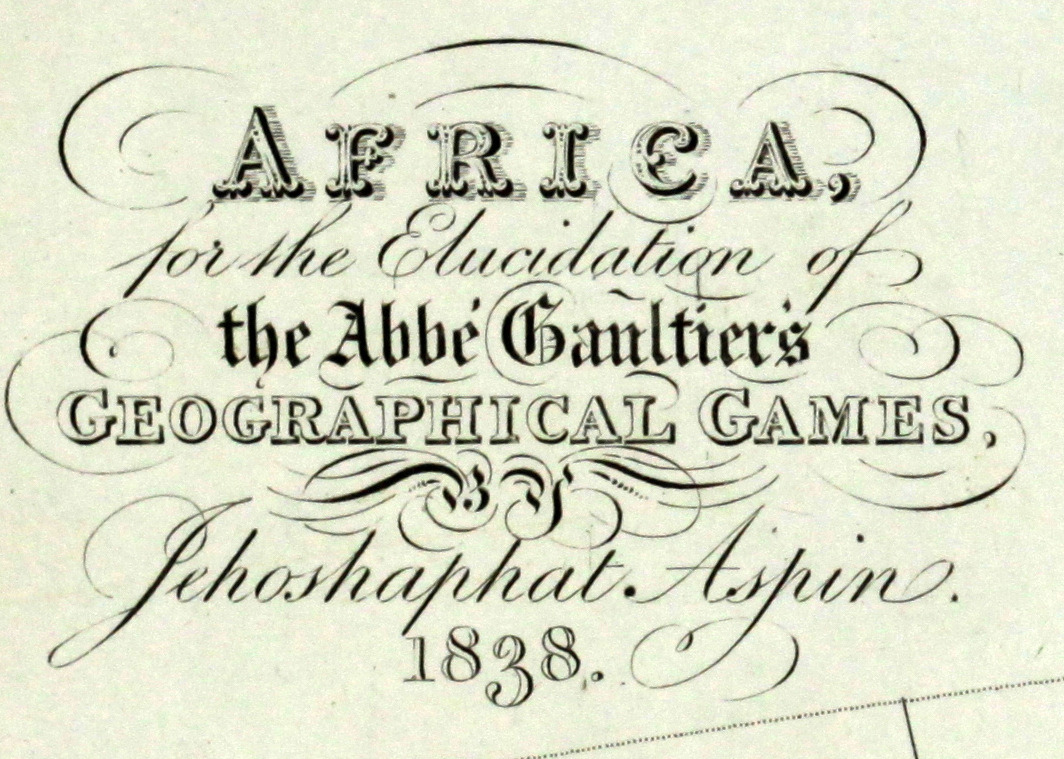 AFRICA,
for the Elucidation of
the Abbé Gaultier's
GEOGRAPHICAL GAMES,
BY
Jehoshaphat Aspin.
1838.